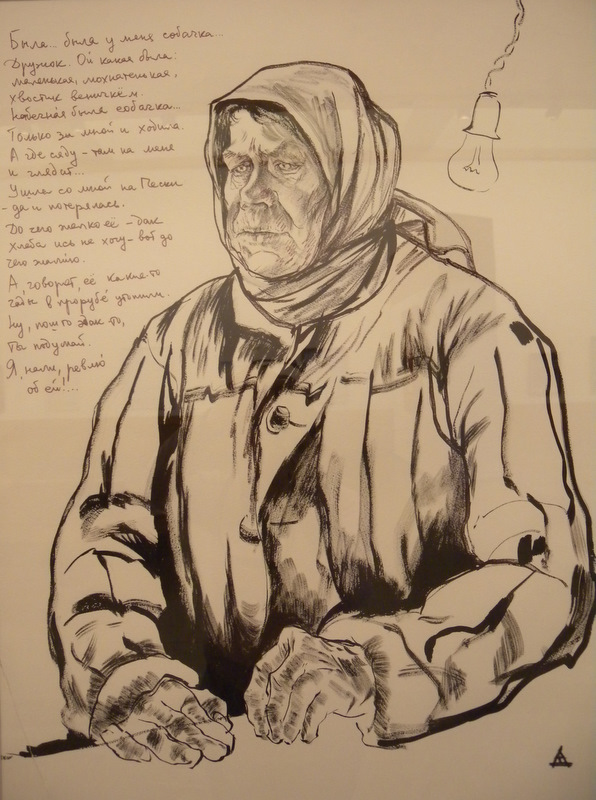 Была... была у меня собачка...
Дружок. Ой какая была:
маленькая, мохнатенькая,
хвостик веничкем.
была собачка...
Только за мной и ходила.
А где сяду – там на меня
и глядит...
Ушла со мной на Пески
– да и потерялась.
До чего жалко её – дак
хлеба ись не хочу – вот до
чего жалко.
А, говорят, её какие-то
гады в прорубе утопили.
Ну, пошто эдак-то,
ты подумай.
Я, нали, ревлю
об ей!...